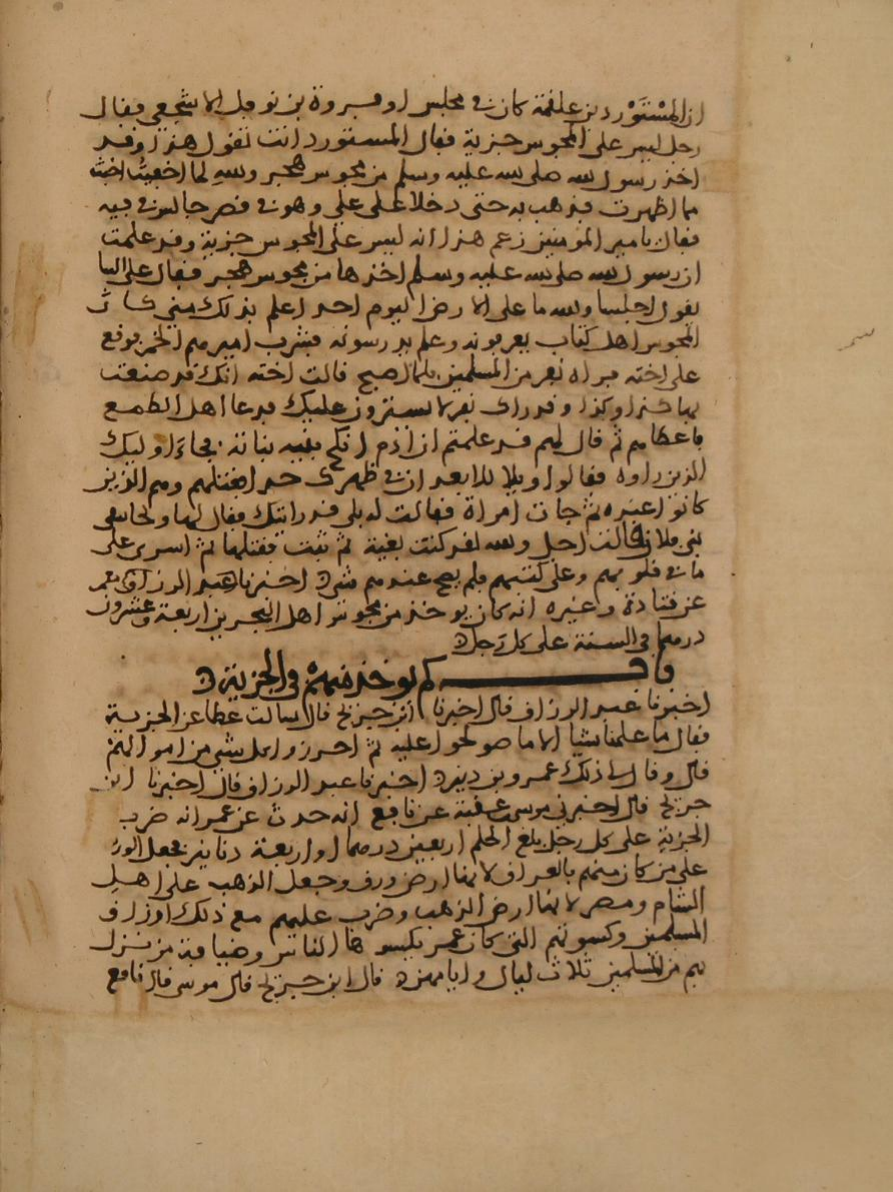 ان المستورد بن علقمة كان في مجلس او فروة بن نوفل الاشجعي فقال
رجل ليس على المجوس جزية فقال المستورد انت تقول هذا وقد
اخذ رسول الله صلى الله عليه وسلم من مجوس هجر والله لما اخفيت اخبث
مما اظهرت فذهب به حتى دخلا على علي وهو في قصر جالس في قبة
فقال يا امير المومنين زعم هذا انه ليس على المجوس جزية وقد علمت
ان رسول الله صلى الله عليه وسلم اخذها من مجوس هجر فقال علي البا
يقول اجلسا والله ما على الارض اليوم احد اعلم بذلك مني كان
المجوس اهل كتاب يعرفونه وعلم يدرسونه فشرب اميرهم الخمر فوقع
على اخته فراه نفر من المسلمين فلما اصبح قالت اخته انك قد صنعت
بها كذا وكذا وقد راك نفر لا يسترون عليك فدعا اهل الطمع
فاعطاهم ثم قال لهم قد علمتم ان ادم انكح بنيه بناته فجاء اوليك
الذين راوه فقالوا ويلا للابعد ان في ظهرك حد افقتلهم وهم الذين
كانوا عنده ثم جات امراة فقالت له بلى قد رايتك فقال لها ويحا لبغي
بني فلان قالت اجل والله لقد كنت بغية ثم تبت فقتلها ثم اسري على
ما في قلوبهم وعلى كتبهم فلم يصح عندهم شي اخبرنا عبد الرزاق عن معمر
عن قتادة وغيره انه كان يوخذ من مجوس اهل البحرين اربعة وعشرون
درهما في السنة على كل رجل
باب كم يوخذ منهم في الجزية
اخبرنا عبد الرزاق قال اخبرنا ابن جريج قال سالت عطا عن الجزية
فقال ما علمنا شيا الا ما صولحوا عليه ثم احرزوا كل شي من اموالهم
قال وقال لي ذلك عمرو بن دينر اخبرنا عبد الرزاق قال اخبرنا ابن
جريج قال اخبرني موسى بن عقبة عن نافع انه حدث عن عمر انه ضرب
الجزية على كل رجل بلغ الحلم اربعين درهما او اربعة دنانير فجعل الورق
على من كان منهم بالعراق لانها ارض ورق وجعل الذهب على اهل
الشام ومصر لانها ارض الذهب وضرب عليهم مع ذلك ارزاق
المسلمين وكسوتهم التي كان عمر يكسوها الناس وضيافة من نزل
بهم من المسلمين ثلاث ليال وايامهن قال ابن جريج قال موسى قال نافع